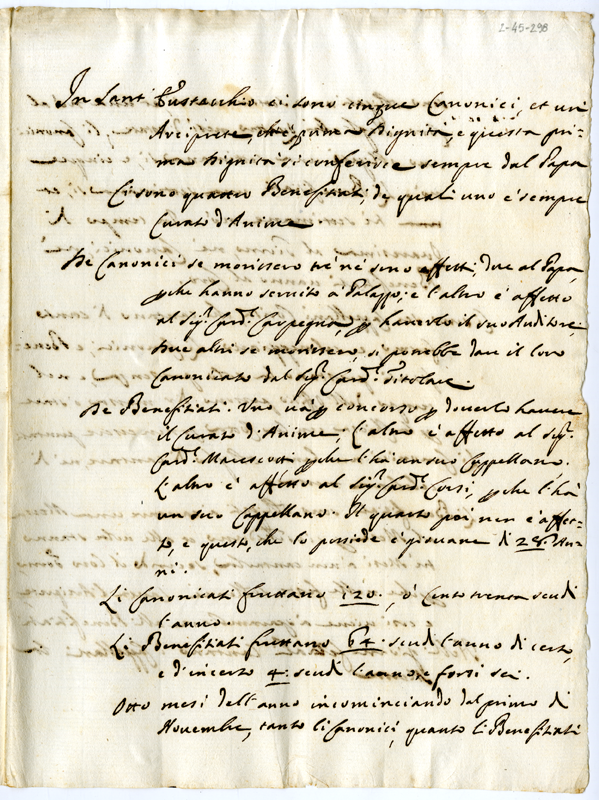 2-45-298
In Sant' Eustacchio ci sono cinque Canonici, et un
Arciprete, che è prima Dignità, e questa pri-
ma Dignità si conferisce sempre dal Papa
Ci sono quattro Benefitiati, de quali uno è sempre
Curato d'Anime.
De Canonici se morissero trè né sono affetti, due al Papa,
pche hanno servito à Palazzo, e l'altro è affetto
al Sigr. Card. Carpegna, p haverlo il suo Auditore.
Due altri se morissero, si potrebbe dare il loro
Canonicato dal Sigr. Card. Titolare.
De Benefitiati. Uno và p concorso p doverlo havere
il Curato d'Anime; l'altro è affetto al Sigr.
Card. Marescotti pche l'hà un suo Cappellano.
L'altro è affetto al Sigr. Card. Corsi, pche l'hà
un suo Cappellano. Il quarto poi non è affet-
to, e questo, che lo possiede è giovane di 28. An-
ni.
Li Canonicati fruttano 120., ò Cento trenta scudi
l'anno.
Li Benefitiati fruttano 64. scudi l'anno di certo,
e d'incerto 4. scudi l'anno, e forsi sei.
Otto mesi dell'anno incominciando dal primo di
Novembre, tanto li Canonici, quanto li Benefitiati